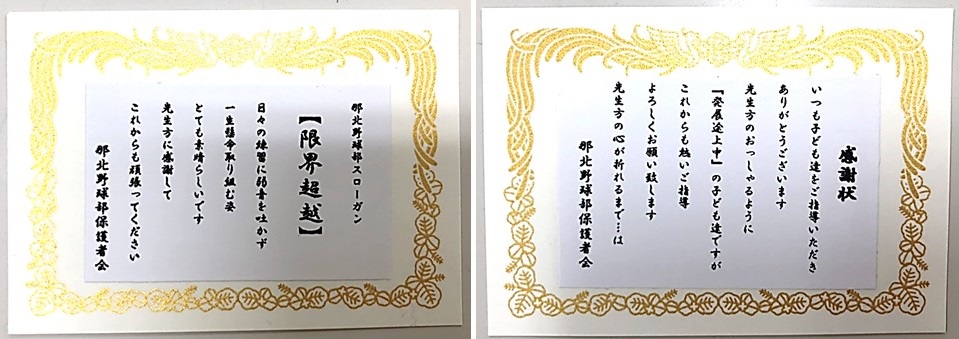 那北野球部スローガン
【限界超越】
日々の練習に弱音を吐かず
一生懸命取り組む姿
とても素晴らしいです
先生方に感謝して
これからも頑張ってください
那北野球部保護者会
感謝状
いつも子ども達をご指導いただき
ありがとうございます
先生方のおっしゃるように
『発展途上中』の子ども達ですが
これからも熱いご指導
よろしくお願い致します
先生方の心が折れるまで…は
那北野球部保護者会